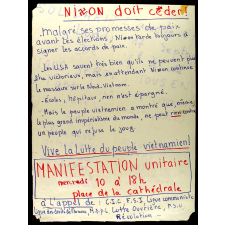 NIXON doit céder!
malgré ses promesses de paix
avant les élections, Nixon tarde toujours à
signer les accords de paix.
Les USA savent très bien qu'ils ne peuvent plus
être victorieux, mais en attendant Nixon continue
le massacre sur le Nord-Vietnam.
Ecoles, hôpitaux, rien n'est épargné.
Mais le peuple vietnamien a montré que même
le plus grand impérialisme du monde, ne peut rien contre
un peuple qui refuse le joug.
Vive la Lutte du peuple vietnamien!
MANIFESTATION unitaire
mercredi 10 à 18h
place de la cathédrale
à l'appel de: Ligue communiste
Lutte Ouvrière, P.S.U
Révolution